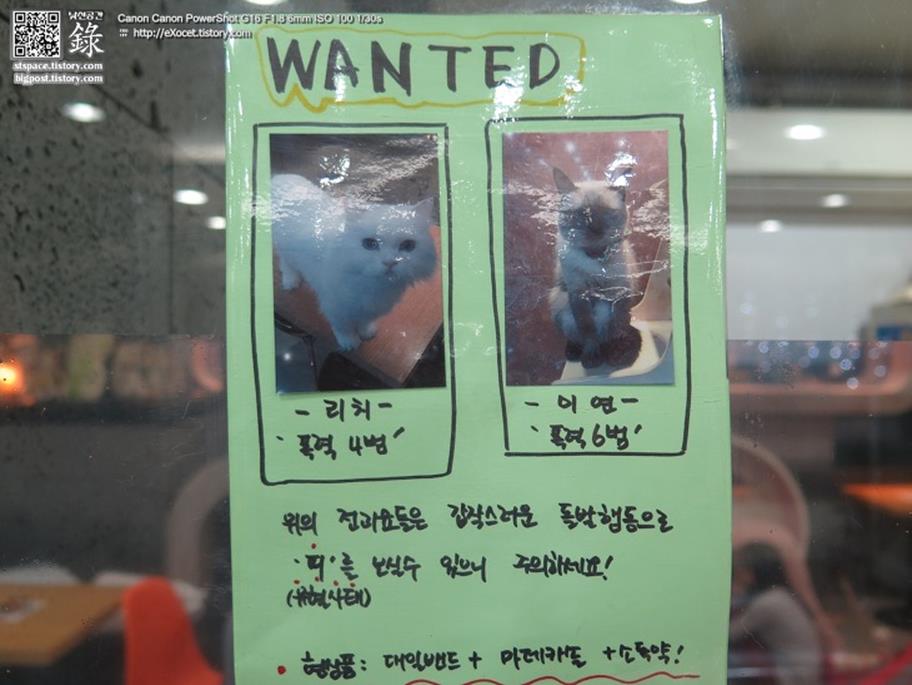 Canon Canon PowerShot G16 F1.8 6mm ISO 100 1/30s
http://eXocet.tistory.com
낙선공간
錄
stspace.tistory.com
bigpost.tistory.com
WANTED
- 리치 -
'폭력 4범'
- 이연 -
'폭력 6범'
위의 전과묘들은 갑작스러운 돌발행동으로
'피'를 보실수 있으니 주의하세요!
(유혈사태)
• 현상품: 대일밴드 + 마데카솔 + 소독약!